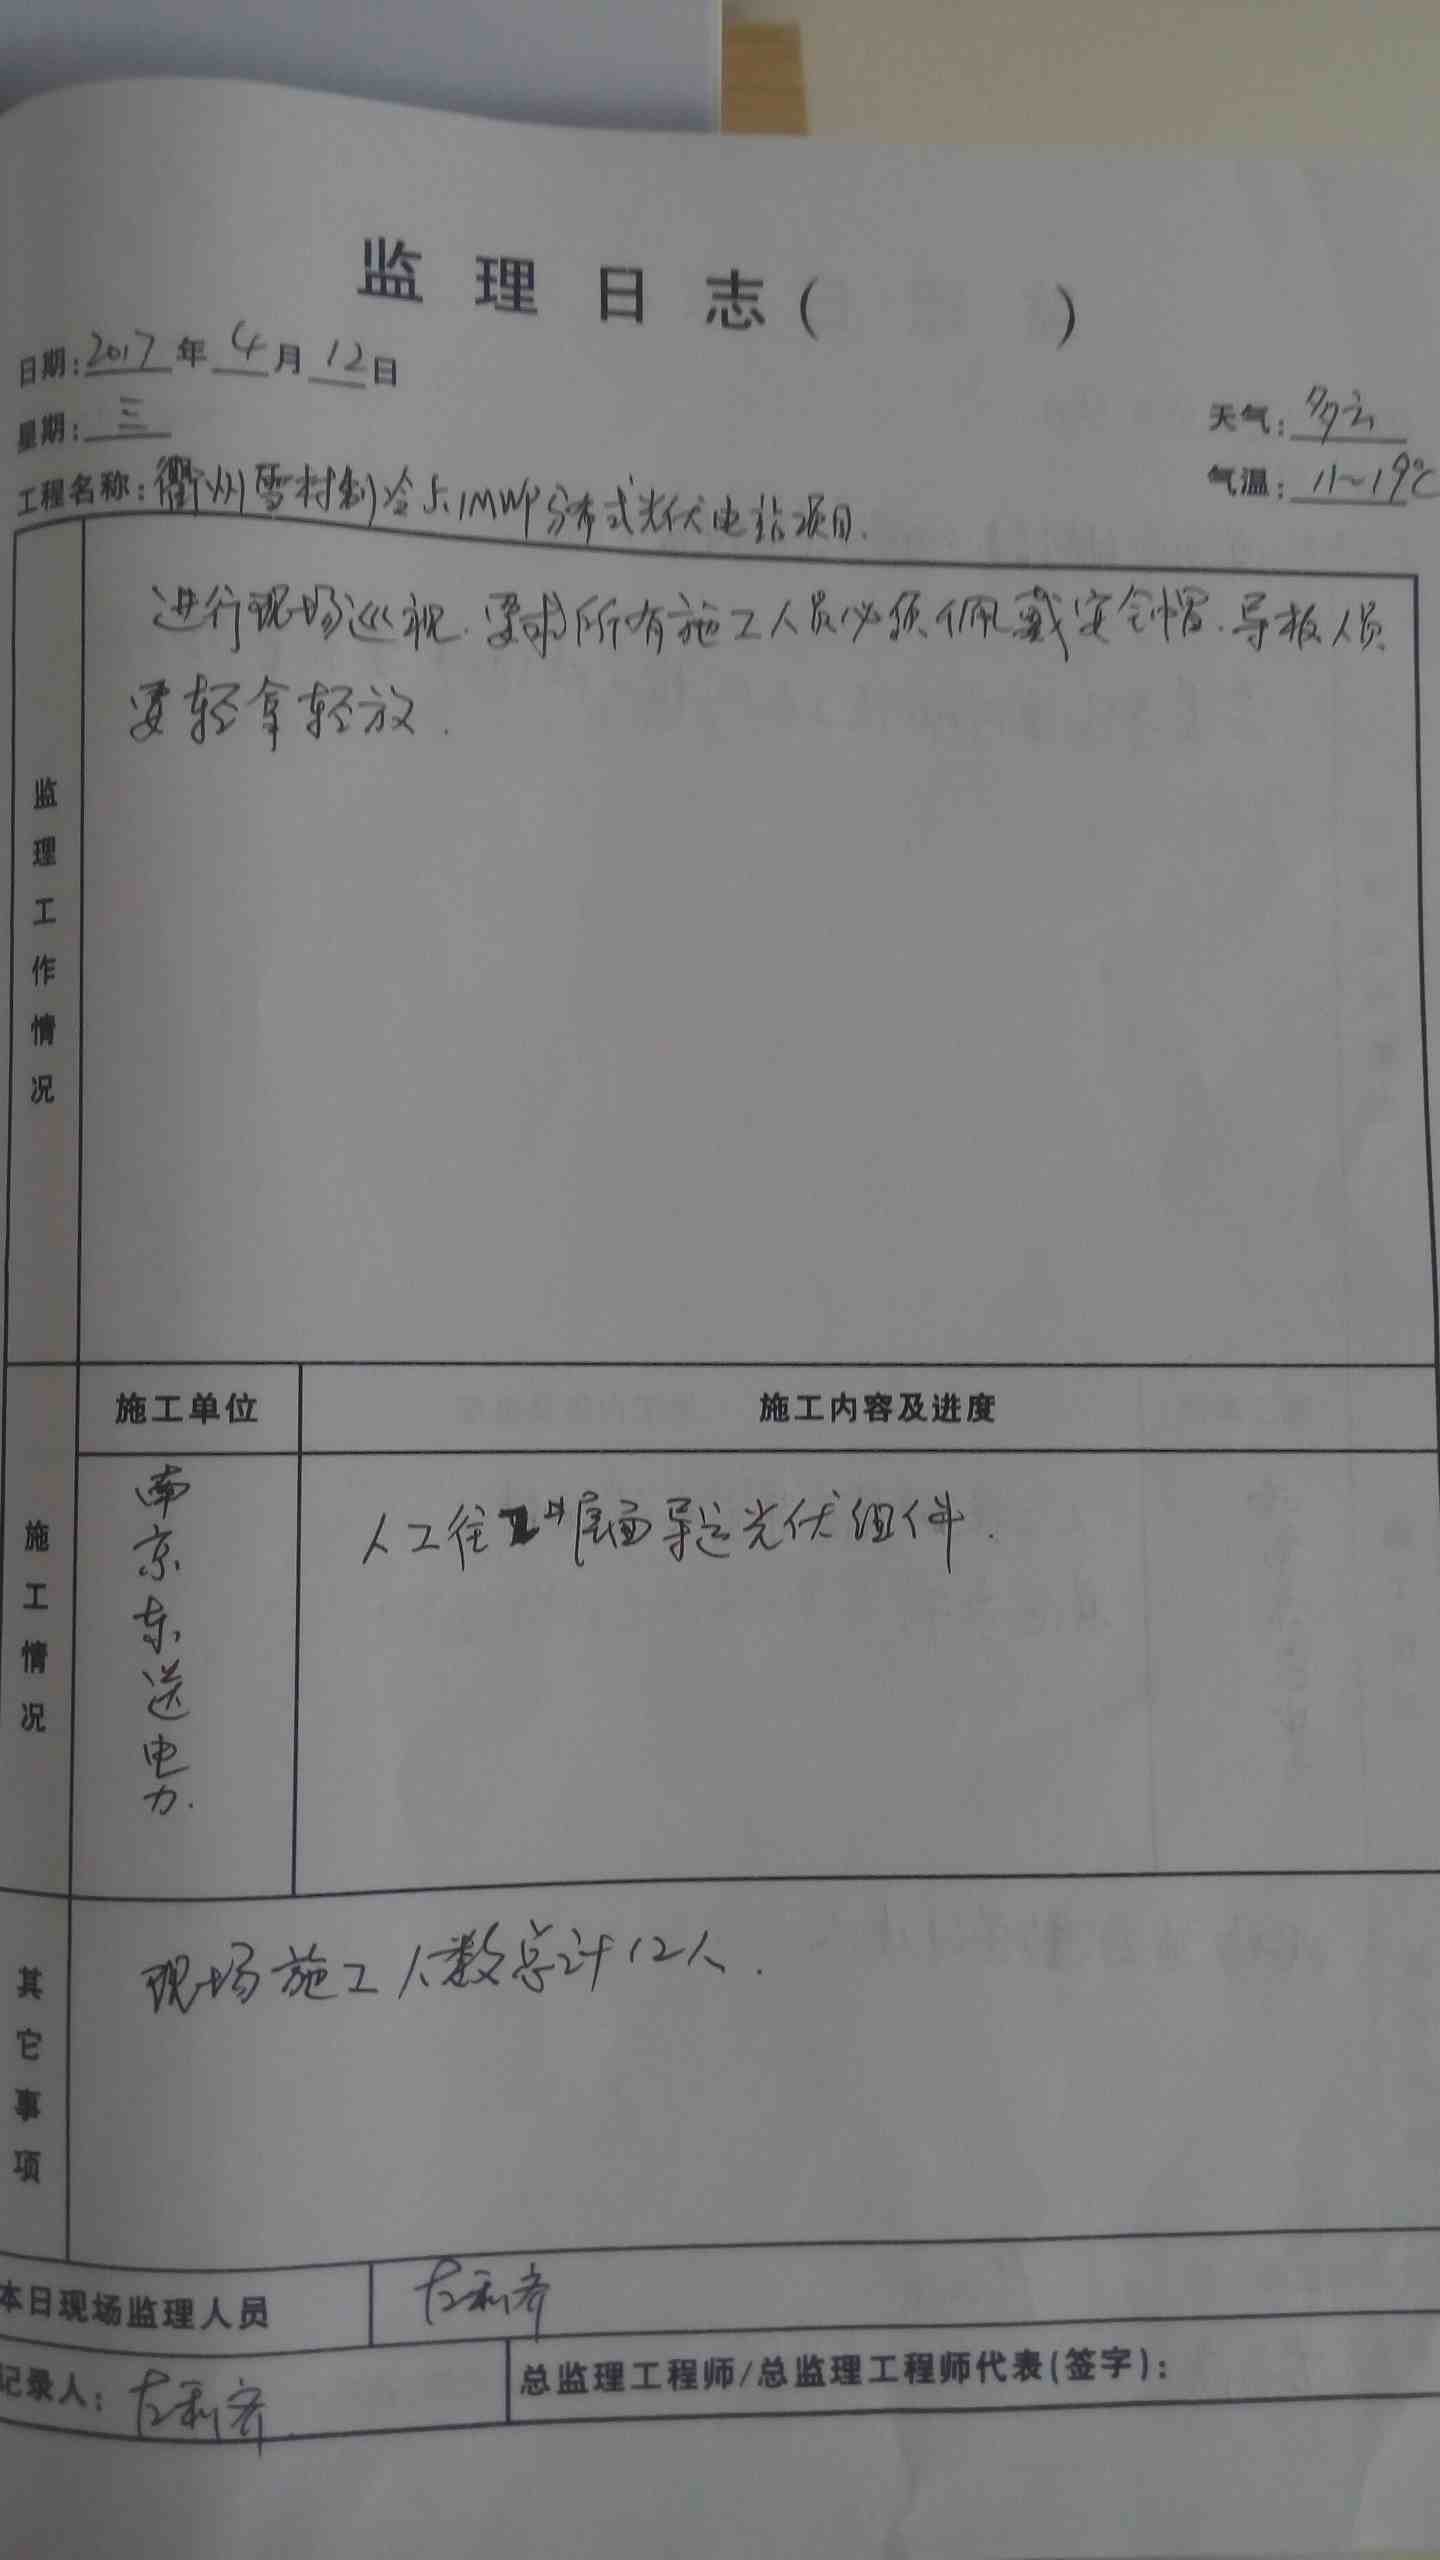 监理日志（ ）
日期：2017年4月12日
星期：三
天气：多云
气温：11～19℃
工程名称：衢州雪村制冷5.1MWP分布式光伏电站项目.
监理工作情况
进行现场巡视.要求所有施工人员必须佩戴安全帽.导板人员
要轻拿轻放.
施工情况
施工单位
施工内容及进度
南京东送电力.
人工往 屋面导运光伏组件.
其它事项
现场施工人数总计12人.
本日现场监理人员
记录人：
总监理工程师/总监理工程师代表(签字)：